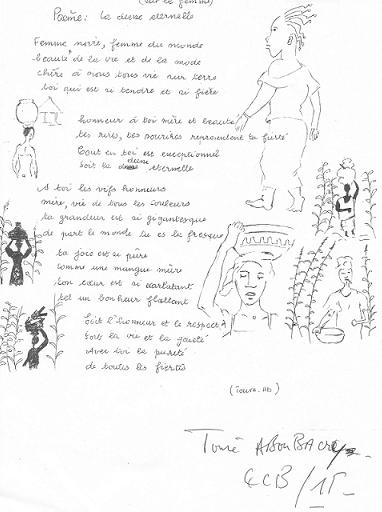 (sur la femme)
Poème : la deesse eternelle
Femme noire, femme du monde
beauté de la vie et de la mode
chère à nous tous vie sur terre
toi qui est si tendre et si fière
honneur à toi mère et beauté
tes rires, tes sourires représentent ta
Tout en toi est exceptionnel
Soit la deesse eternelle
A toi les vifs honneurs
mère, vie de tous les
ta grandeur est si gigantesque
de part le monde tu es la fresque
ta joie est si pûre
comme une mangue mûre
ton cœur est si
tel un bonheur flattant
Soit l'honneur et le respect
Soit la vie et la gaieté
Avec toi la pureté
de toutes les fiertés
Touré